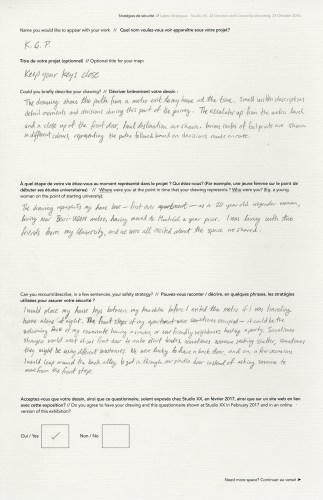 Stratégies de sécurité // Safety Strategies - Studio XX, 22 October and Concordia University, 23 October 2016
Name you would like to appear with your work // Quel nom voulez-vous voir apparaître sous votre projet?
K. G. P.
Titre de votre projet (optionnel) // Optional title for your map:
Keep your keys close
Could you briefly describe your drawing? // Décrivez brièvement votre dessin :
The drawing shows the path from a metro exit to my home at the time. Small written descriptions
detail moments and decisions during this part of the journey. The escalator up from the metro level
and a close up of the front door, final destination are shown. Series of footprints are shown
in different colours, representing the paths followed based on decisions made en route.
À quel étape de votre vie étiez-vous au moment représenté dans le projet ? Qui étiez-vous? (Par exemple, une jeune femme sur le point de
débuter ses études universitaires) // Where were you at the point in time that your drawing represents? Who were you? (Eg. a young
woman on the point of starting university).
The drawing represents my home base - first ever apartment - as a 20 year old cisgender woman,
living near metro, having moved to Montréal a year prior. I was living with two
friends from my University, and we were all excited about the space we shared.
Can you recount/describe, in a few sentences, your safety strategy? // Pouvez-vous raconter / décrire, en quelques phrases, les stratégies
utilisées pour assurer votre sécurité ?
I would place my house keys between my knuckles before I exited the metro if I was traveling
home alone at night. The front steps of my apartment were sometimes occupied - it could be the
welcoming face of my roommate having a smoke, or our friendly neighbours having a party. Sometimes
strangers would meet at our front door to make illicit trades, sometimes someone seeking shelter, sometimes
they might be using different substances. We were lucky to have a back door, and on a few occasions
I would loop around the back alley to get in through our back door instead of asking someone to
move from the front steps.
Acceptez-vous que votre dessin, ainsi que ce questionnaire, soient exposés chez Studio XX, en février 2017, ainsi que sur un site web en lien
avec cette exposition? // Do you agree to have your drawing and this questionnaire shown at Studio XX in February 2017 and in an online
version of this exhibition?
Oui / Yes ✓ Non / No
Need more space? Continuer au verso! ➤